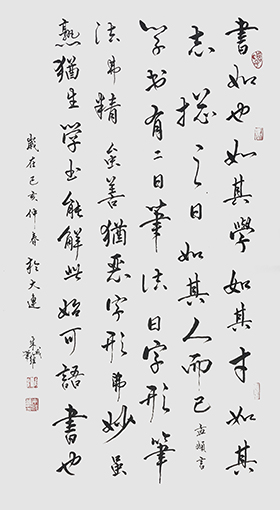 書如也如其學如其才如其
志總之曰如其人而已孟頫
學书有二曰筆法曰字形筆
法弗精虽善猶惡字形弗妙虽
熟猶生学书能解此始可語書也
歲在己亥仲春於大連